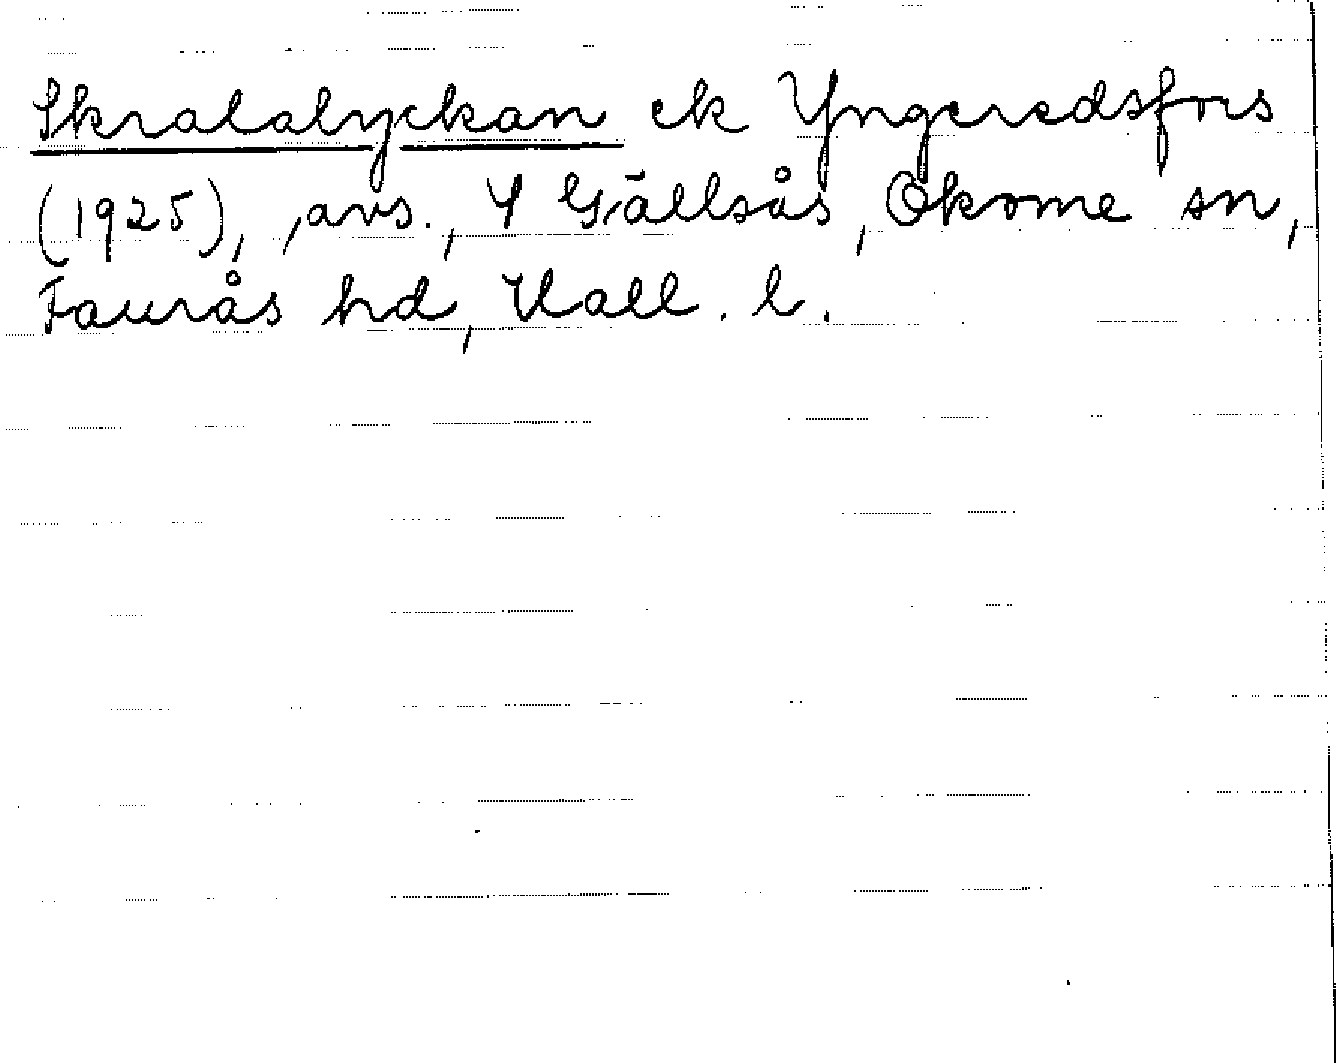 Skralalyckan ek Yngeredsfors
(1925), avs., Y Gällsås, Okome sn,
Faurås hd, Hall. l.